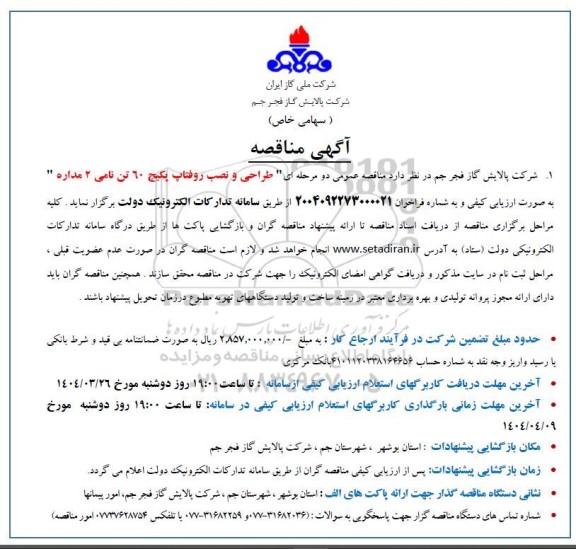 شرکت ملی گاز ایران
شرکت پالایش گاز فجر جم
( سهامی خاص)
آگهی مناقصه
۱. شرکت پالایش گاز فجر جم در نظر دارد مناقصه عمومی دو مرحله ای" طراحی و نصب روفتاپ پکیج ۶۰ تن نامی ۲ مداره "
به صورت ارزیابی کیفی و به شماره فراخوان ۲۰۰۴۰۹۲۲۷۳۰۰۰۰۲۱ از طریق سامانه تدارکات الکترونیک دولت برگزار نماید . کلیه
مراحل برگزاری مناقصه از دریافت اسناد مناقصه تا ارائه پیشنهاد مناقصه گران و بازگشایی پاکت ها از طریق درگاه سامانه تدارکات
الکترونیکی دولت (ستاد) به آدرس www.setadiran.ir انجام خواهد شد و لازم است مناقصه گران در صورت عدم عضویت قبلی ،
مراحل ثبت نام در سایت مذکور و دریافت گواهی امضای الکترونیک را جهت شرکت در مناقصه محقق سازند . همچنین مناقصه گران باید
دارای ارائه مجوز پروانه تولیدی و بهره برداری معتبر در زمینه ساخت و تولید دستگاههای تهویه مطبوع درزمان تحویل پیشنهاد باشند .
• حدود مبلغ تضمین شرکت در فرآیند ارجاع کار : به مبلغ ۲,۸۵۷,۰۰۰,۰۰۰/– ریال به صورت ضمانتنامه بی قید و شرط بانکی
یا رسید واریز وجه نقد به شماره حساب بانک مرکزی
• آخرین مهلت دریافت کاربرگهای استعلام ارزیابی کیفی ازسامانه : تا ساعت ۱۹:۰۰ روز دوشنبه مورخ ۱۴۰۴/۰۳/۲۶
• آخرین مهلت زمانی بارگذاری کاربرگهای استعلام ارزیابی کیفی در سامانه: تا ساعت ۱۹:۰۰ روز دوشنبه مورخ
۱۴۰۴/۰۴/۰۹
• مکان بازگشایی پیشنهادات : استان بوشهر ، شهرستان جم ، شرکت پالایش گاز فجر جم
• زمان بازگشایی پیشنهادات: پس از ارزیابی کیفی مناقصه گران از طریق سامانه تدارکات الکترونیک دولت اعلام می گردد.
• نشانی دستگاه مناقصه گذار جهت ارائه پاکت های الف : استان بوشهر ، شهرستان جم ، شرکت پالایش گاز فجر جم، امور پیمانها
• شماره تماس های دستگاه مناقصه گزار جهت پاسخگویی به سوالات : (۳۱۶۸۲۰۳۶-۰۷۷و ۳۱۶۸۲۲۵۹-۰۷۷ یا تلفکس ۰۷۷۳۷۶۲۸۷۵۴ امور مناقصه)